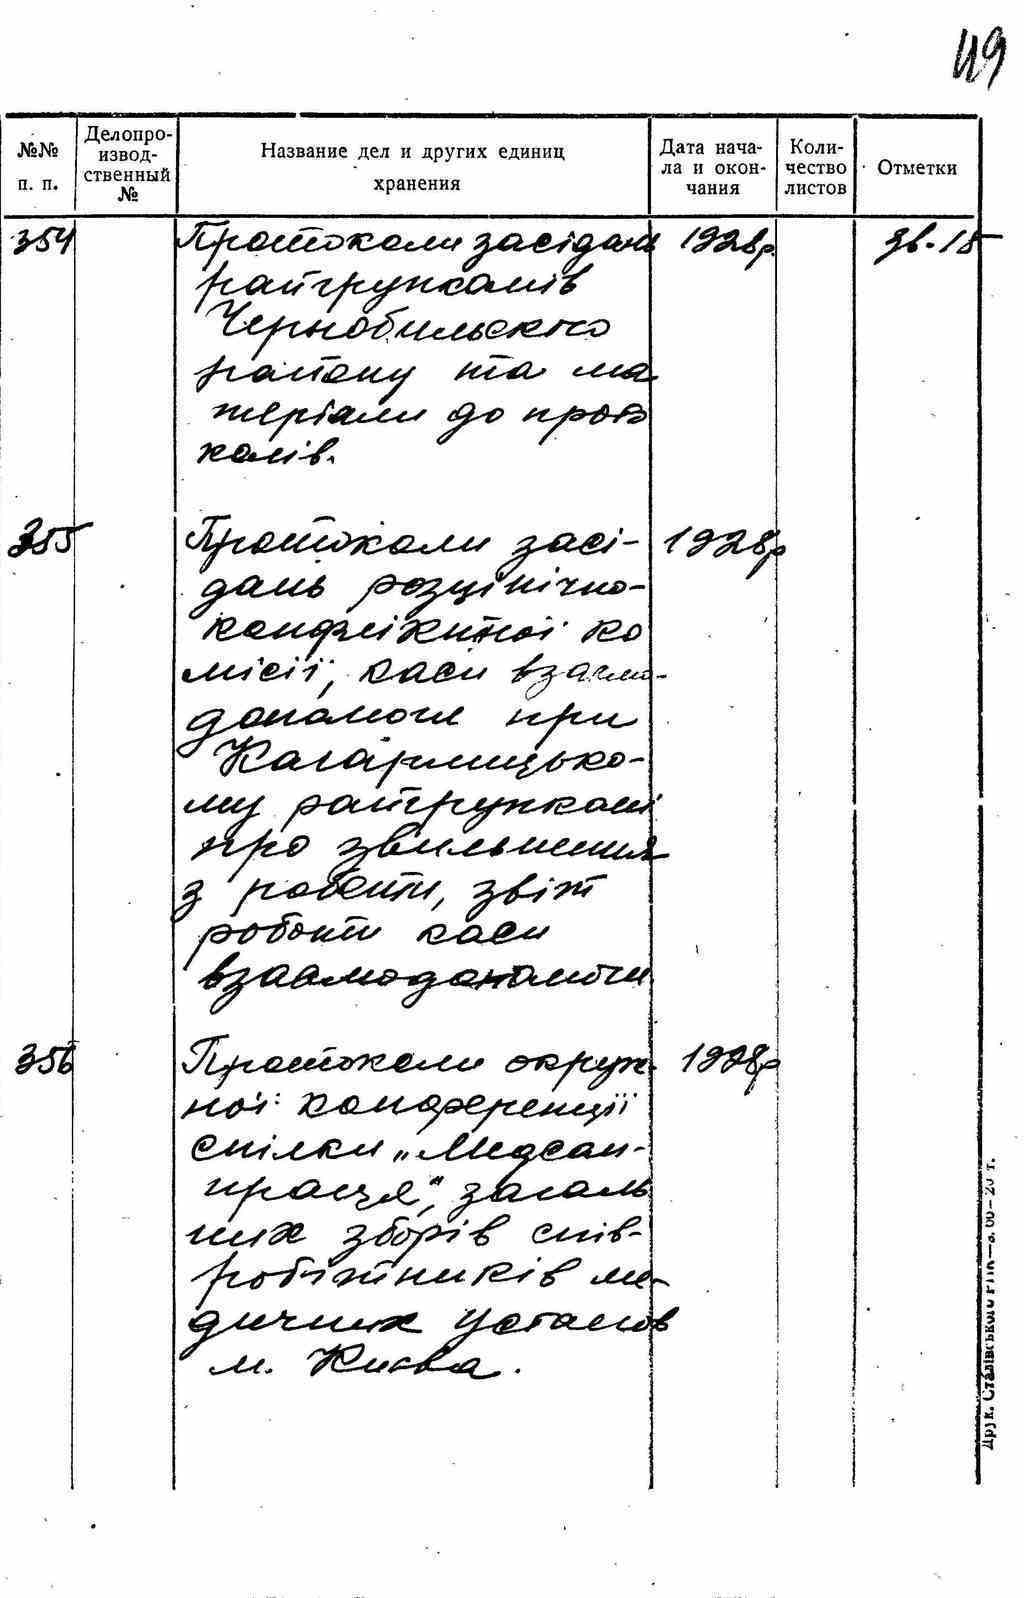 49
№№ п. п.
Делопро-
извод-
ственный
№
Название дел и других единиц
хранения
Дата нача-
ла и окон-
чания
Коли-
чество
листов
Отметки
354 Протоколи засідань 1928р. зв.15
райгрупкомів
Чернобильского
району та ма
теріали до прото
колів.
355 Протоколи засі- 1928р
дань розціночно-
конфліктної ко
місії, каси взаємо-
допомоги при
Кагарлицько-
му райгрупкомі
про звільнення
з роботи, звіт
роботи каси
взаємодопомоги.
356 Протоколи окруж- 1928р
ної конференції
спілки „Медсан-
праця", загаль
них зборів спів-
робітників ме-
дичних установ
м. Києва.
Друк. Сталінського